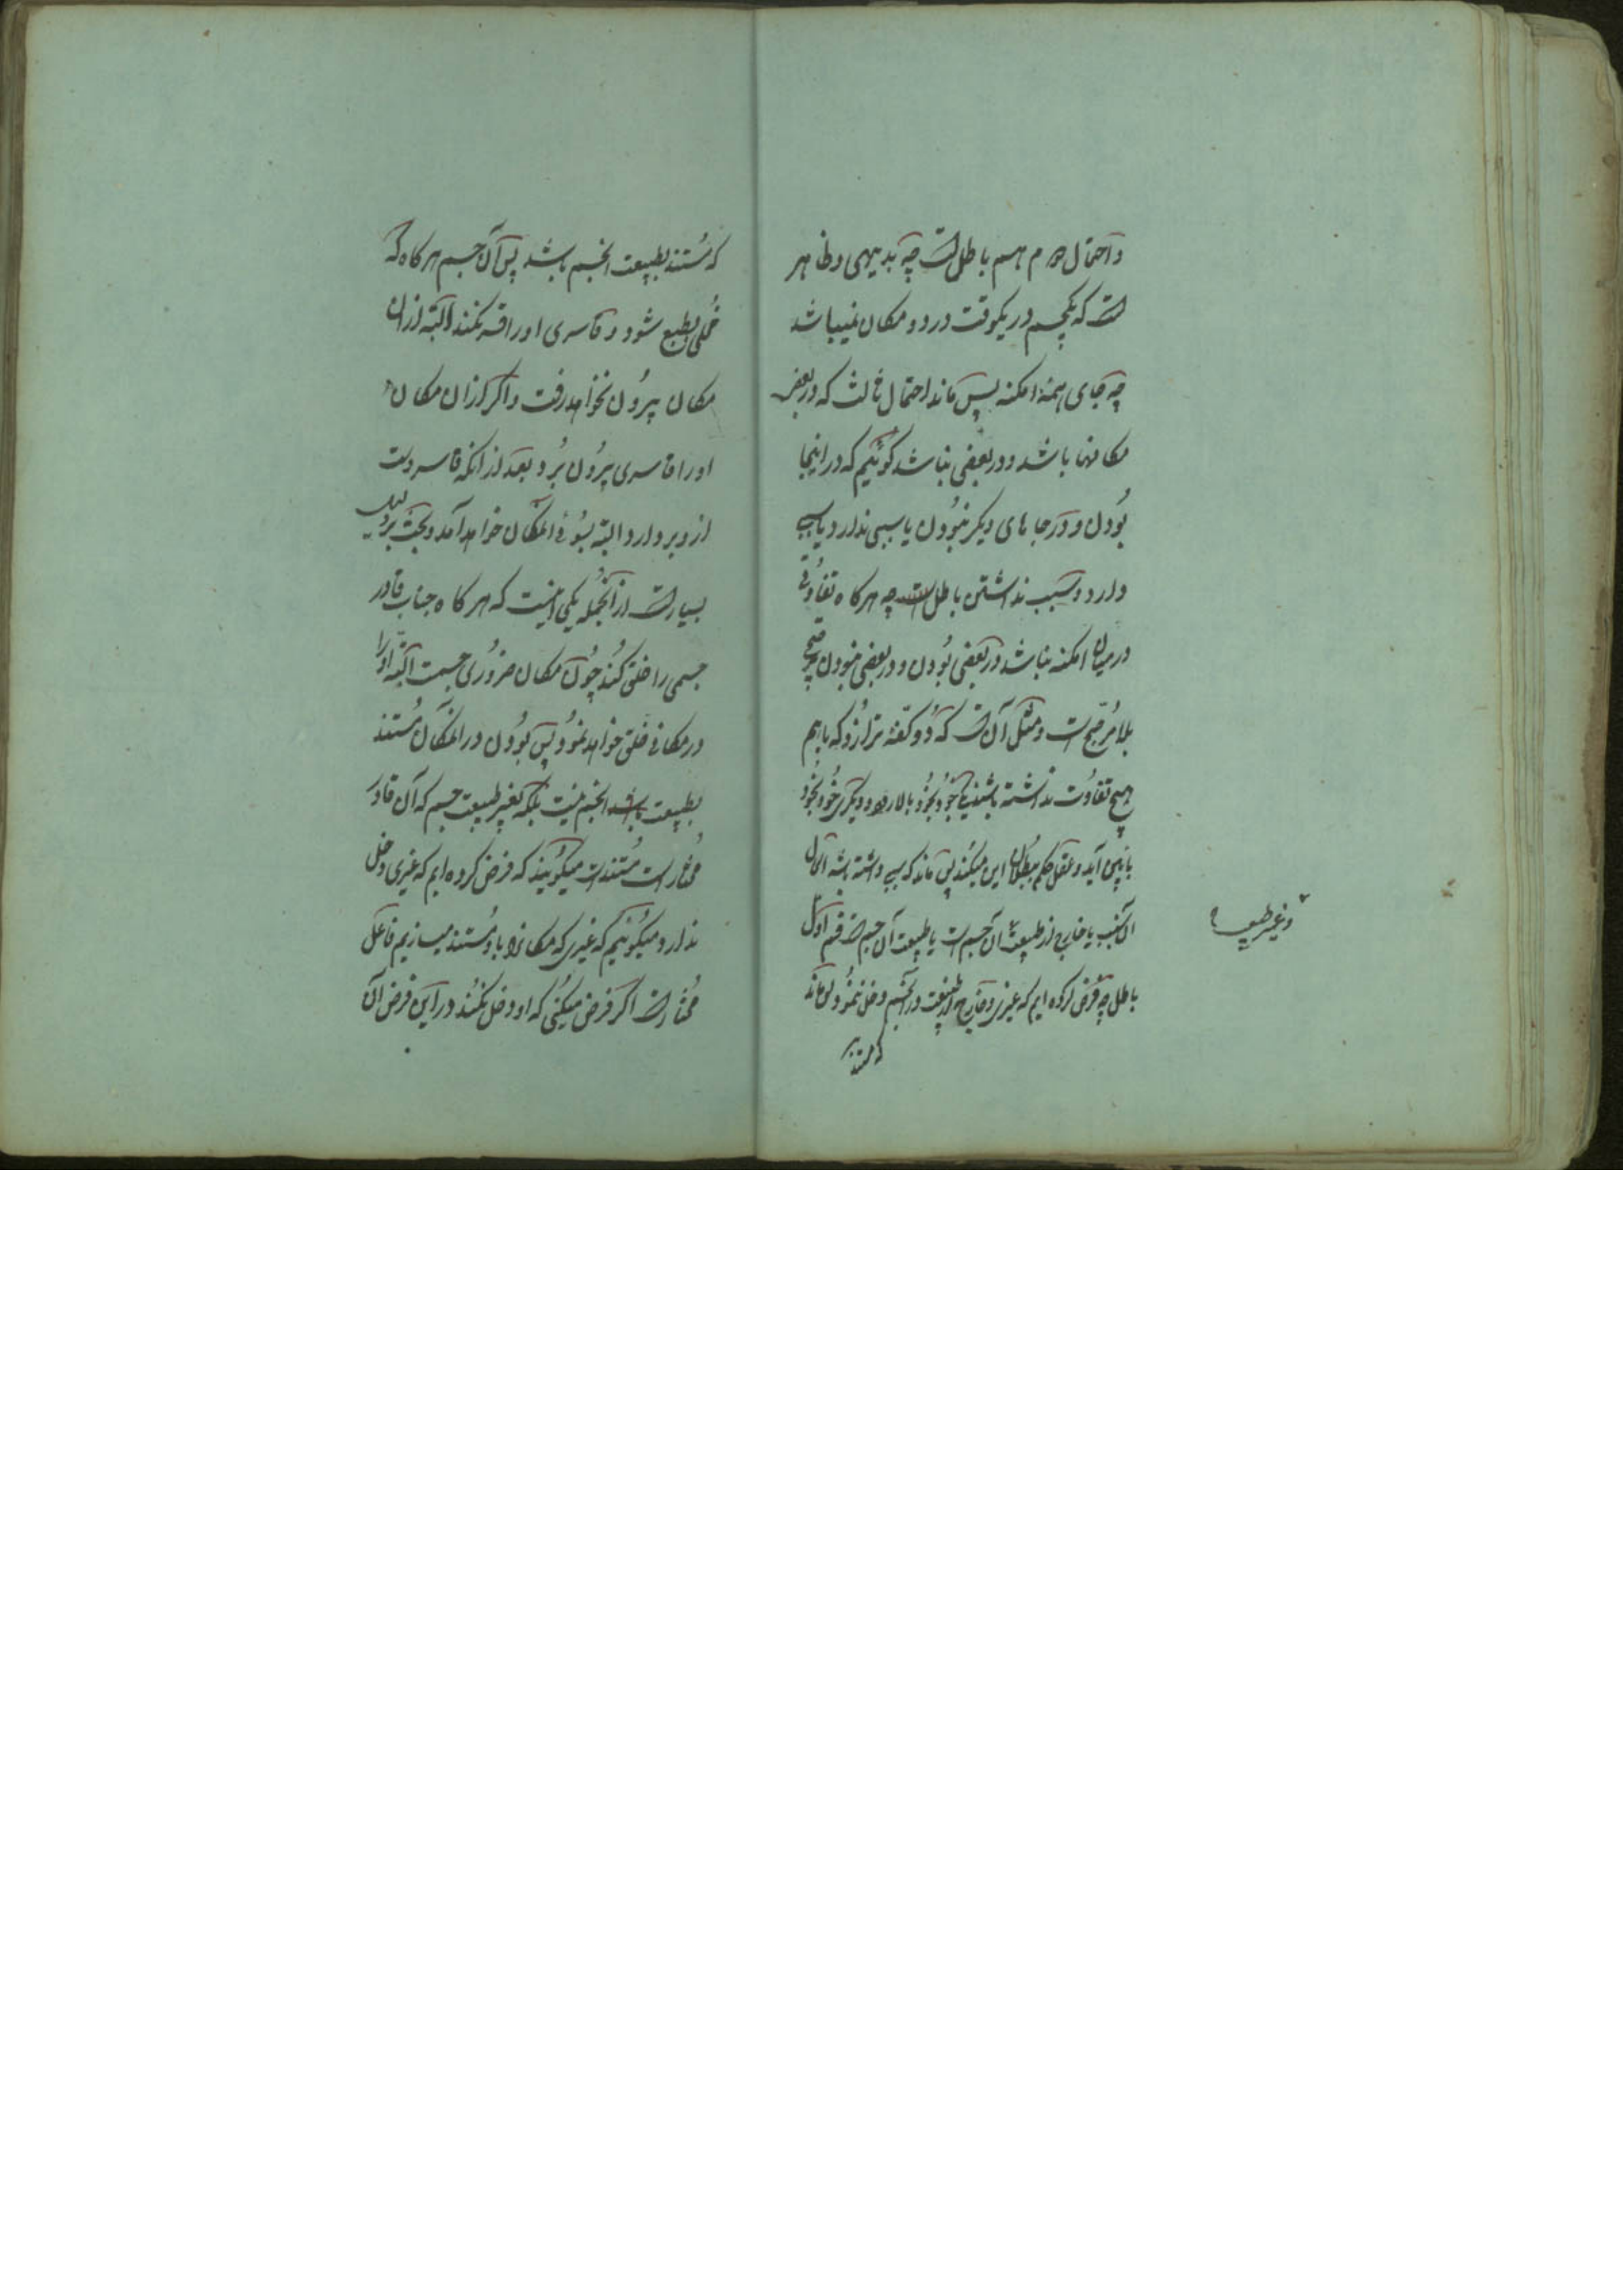 و احتمال دوم هم باطل است چه بدیهی و ظاهر
است که یکجسم در یکوقت در دو مکان نمیباشد
چه جای همهٔ امکنه پس ماند احتمال ثالث که در بعض
مکانها باشد و در بعضی نباشد گوئیم که در اینجا
بودن و در جاهای دیگر نبودن یا سببی ندارد یا سببی
دارد و سبب نداشتن باطل است چه هر کاه تفاوتی
در میان امکنه نباشد در بعضی بودن و در بعضی نبودن ترجیح
بلا مرجح است و مثل آن است که دو کفهٔ ترازو که با هم
هیچ تفاوت نداشته باشند یکی خود بخود بالا رود و دیگری خود بخود
پایین آید و عقل حکم ببطلان این میکند پس ماند که سببی داشته باشد الحال
آن سبب یا خارج از طبیعت آن جسم است یا طبیعت آن جسم است قسم اول
باطل چه فرض کرده ایم که غیری و خارج از طبیعت در آنجسم دخل ننمود پس ماند
که مستند
و غیر طبیعت
که مستند بطبیعت انجسم باشد پس آن جسم هر کاه که
مخلی بطبع شود و قاسری او را قسر نکند البته از ان
مکان بیرون نخواهد رفت و اگر از ان مکان
او را قاسری بیرون برد بعد از انکه قاسر دست
از و بر دارد البته بسوی المکان خواهد آمد و بحث بر دلیل
بسیار است از آنجمله یکی اینست که هر کاه جناب قادر
جسمی را خلق کند چون مکان ضروری جسمست البته او را
در مکانی خلق خواهد نمود پس بودن در المکان مستند
بطبیعت انجسم نیست بلکه بغیر طبیعت جسم که آن قادر
مختار است مستند است میگویند که فرض کرده ایم که غیری دخل
ندارد میگوئیم که غیری که مکانرا باو مستند میسازیم فاعل
مختار است اگر فرض میکنی که او دخل نکند در این فرض آن